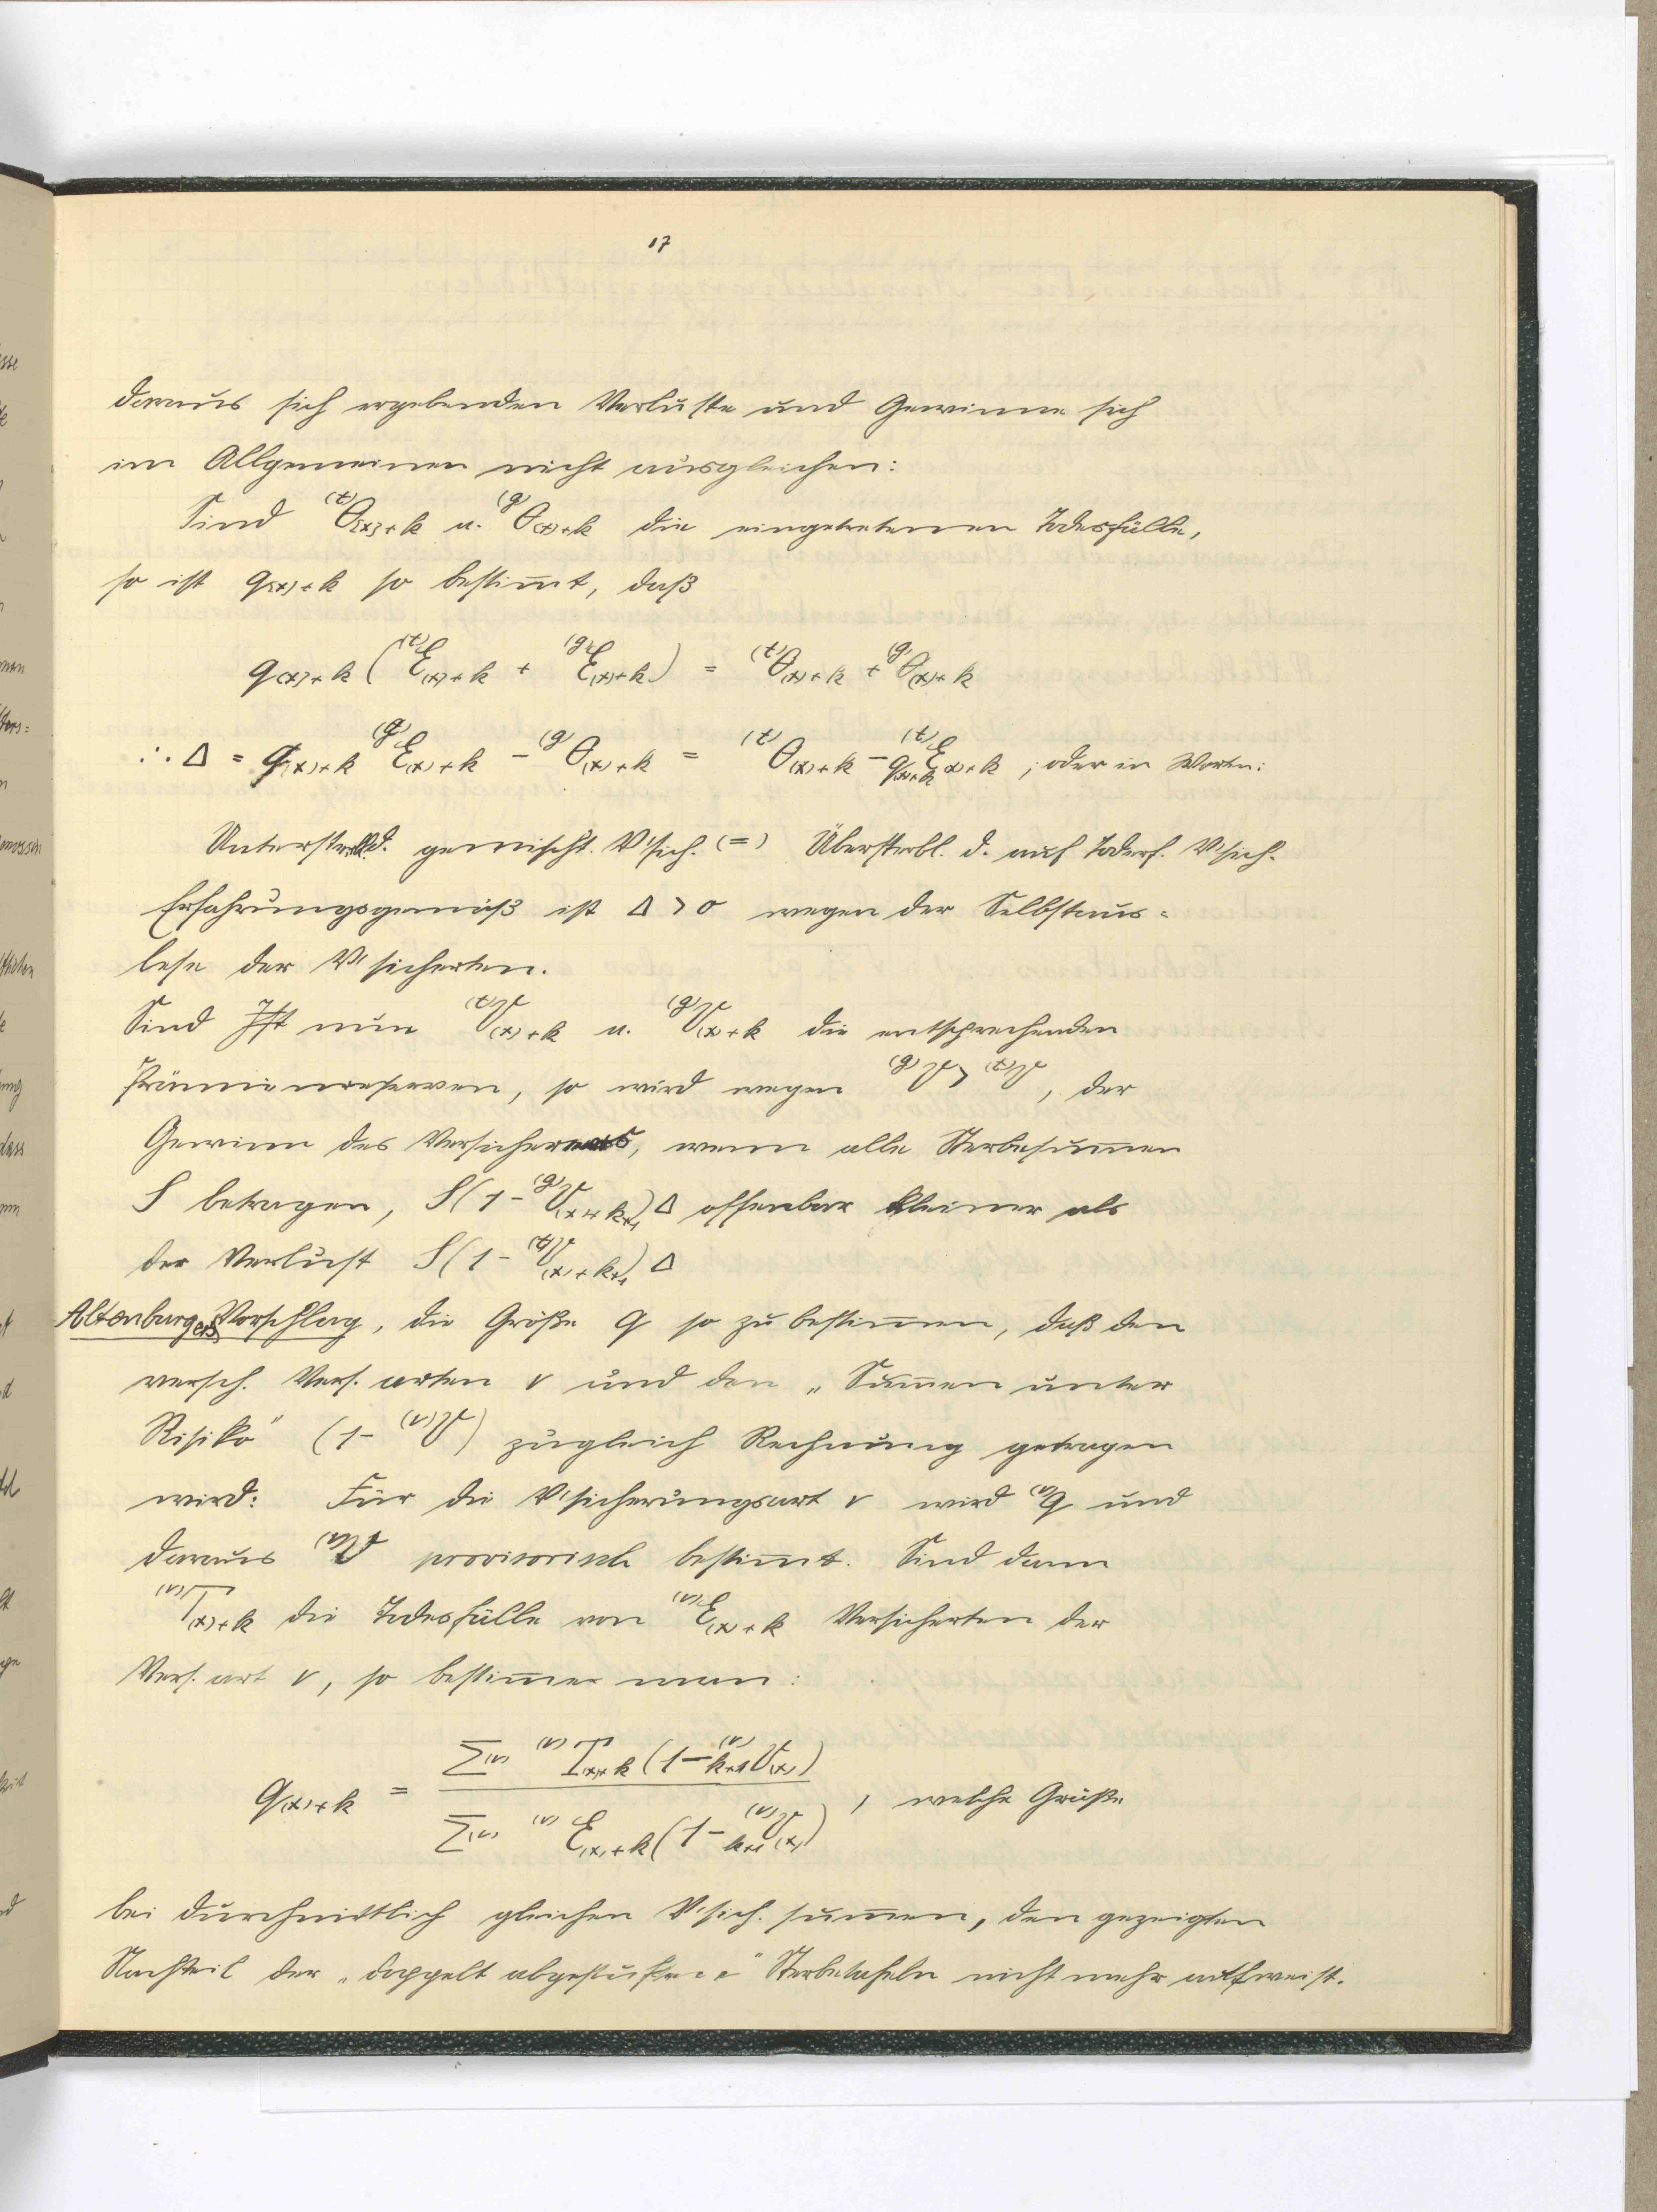 17
daraus sich ergebenden Verluste und Gewinne sich
im Allgemeinen nicht ausgleichen:
Sind ⁽ᵗ⁾θ[x]+k u. ⁽ᵍ⁾θ[x]+k die eingetretenen Todesfälle,
so ist q[x]+k so bestim̅t, daß
q[x]+k (⁽ᵗ⁾E[x]+k + ⁽ᵍ⁾E[x]+k) = ⁽ᵗ⁾θ[x]+k + ⁽ᵍ⁾θ[x]+k
∴ Δ = q[x]+k ⁽ᵍ⁾E[x]+k - ⁽ᵍ⁾θ[x]+k = ⁽ᵗ⁾θ[x]+k - q[x]+k ⁽ᵗ⁾E[x]+k ; oder in Worten:
Untersterbl. d. gemischt. V'sich. (=) Übersterbl. d. auf Todesf. V'sich.
Erfahrungsgemäß ist Δ > 0 wegen der Selbstaus=
lese der V'sicherten.
Sind Ist nun ⁽ᵗ⁾V[x]+k u. ⁽ᵍ⁾V[x]+k die entsprechenden
Prämienreserven, so wird wegen ⁽ᵍ⁾V > ⁽ᵗ⁾V, der
Gewinn des Versicherers, wenn alle Sterbesum̅en
S betragen, S(1-⁽ᵍ⁾V[x]+k+1)Δ offenbar kleiner als
der Verlust S(1-⁽ᵗ⁾V[x]+k+1)Δ
Altenburgers Vorschlag, die Größe q so zu bestim̅en, daß den
versch. Vers. arten ν und den „Sum̅en unter
Risiko" (1-⁽ᵛ⁾V) zugleich Rechnung getragen
wird: Für die V'sicherungsart ν wird ⁽ᵛ⁾q und
daraus ⁽ᵛ⁾V provisorisch bestim̅t. Sind dann
⁽ᵛ⁾T[x]+k die Todesfälle von ⁽ᵛ⁾E[x]+k Versicherten der
Vers. art ν, so bestim̅e man:
q[x]+k = Σ⁽ᵛ⁾ ⁽ᵛ⁾T[x]+k (1-⁽ᵛ⁾k+1V[x])
Σ⁽ᵛ⁾ ⁽ᵛ⁾E[x]+k (1-⁽ᵛ⁾k+1V[x]) , welche Größe
bei durchschnittlich gleichen V'sich. sum̅en, den gezeigten
Nachteil der „doppelt abgestuften" Sterbetafeln nicht mehr aufweist.